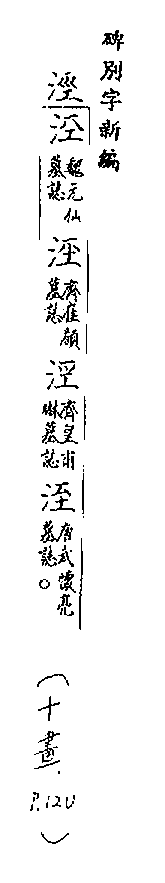 碑別字新編
涇
汵魏元仙墓誌
洷齊崔頠墓誌
浧齊皇甫琳墓誌
洷唐武懷亮墓誌。
(十畫.
P.120)